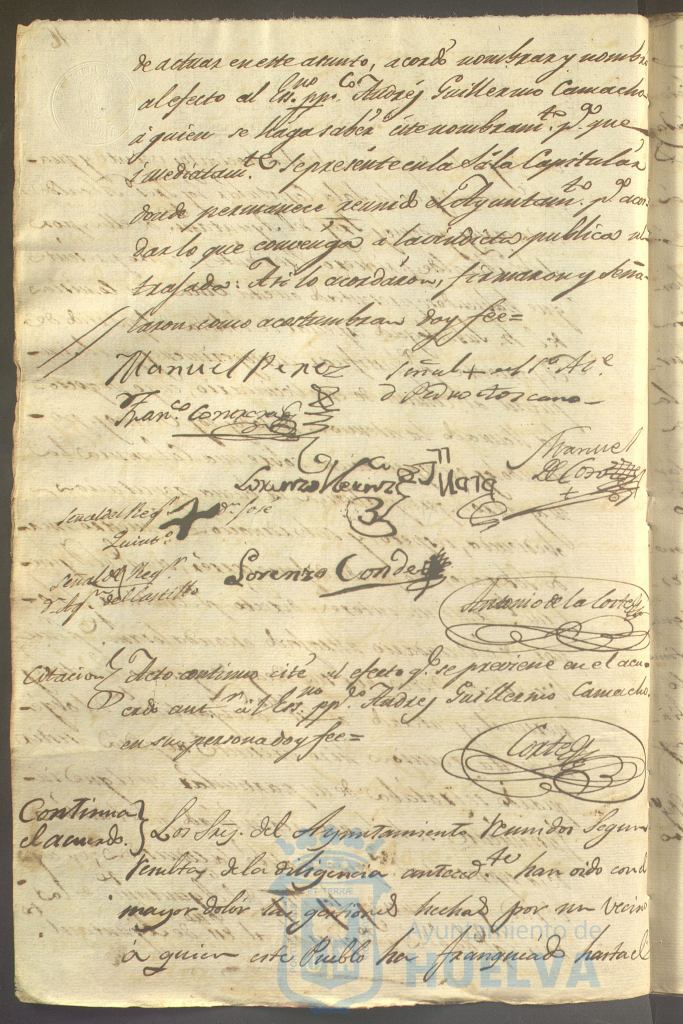 de actuar en este asunto, acordó nombrar y nombra
al efecto al Es.no pp.co Andrés Guillermo Camacho
á quien se haga saber éste nombram.to p.a que
inmediatam.te se presénte en la Sála Capitulár
donde permanece reunido el Ayuntam.to p.a acor-
dar lo que convenga á la vindicta publica ul-
trajada: Asi lo acordáron, firmaron y Seña-
laron como acostumbran doy fee=
Manuel Perez Señal + del S.or Al.e
D Pedro Toscano
Fran.co Contreras
Manuel
Lorenzo
Señal del Reg.r + D.n José
Quint.o
Señal del Reg.r
D.n Ag.n del Castillo
Lorenzo Conde
Antonio de la Corte
Citacion Acto continuo cité al efecto q.e se previene en el acu-
erdo ant.r á el Es.no pp.co Andrés Guillermo Camacho
en su persona doy fee=
Corte
Continua
el acuerdo. Los Sres. del Ayuntamiento reunidos segun
resulta de la diligencia anteced.te han oido con el
mayor dolor las gestiones hechas por un vecino
á quien este Pueblo ha franqueado hasta el
Ayuntamiento de
HUELVA